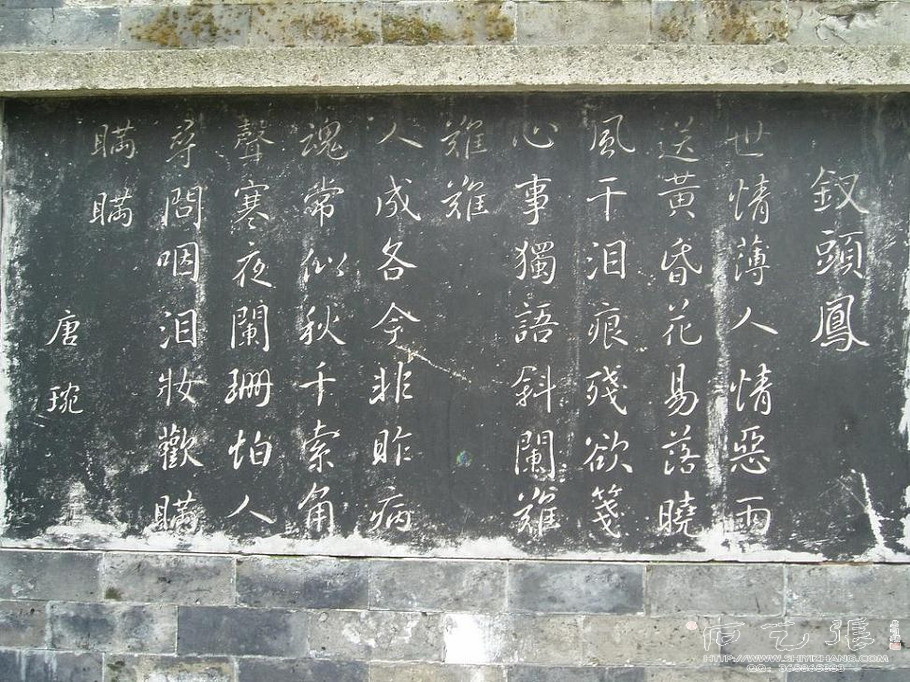 釵頭鳳
世情薄人情惡雨
送黃昏花易落曉
風干泪痕殘欲箋
心事獨語斜闌難
難難
人成各今非昨病
魂常似秋千索角
聲寒夜闌珊怕人
尋問咽泪妝歡瞞
瞞瞞
唐琬
石艺張
HTTP://WWW.SHIYIZHANG.COM